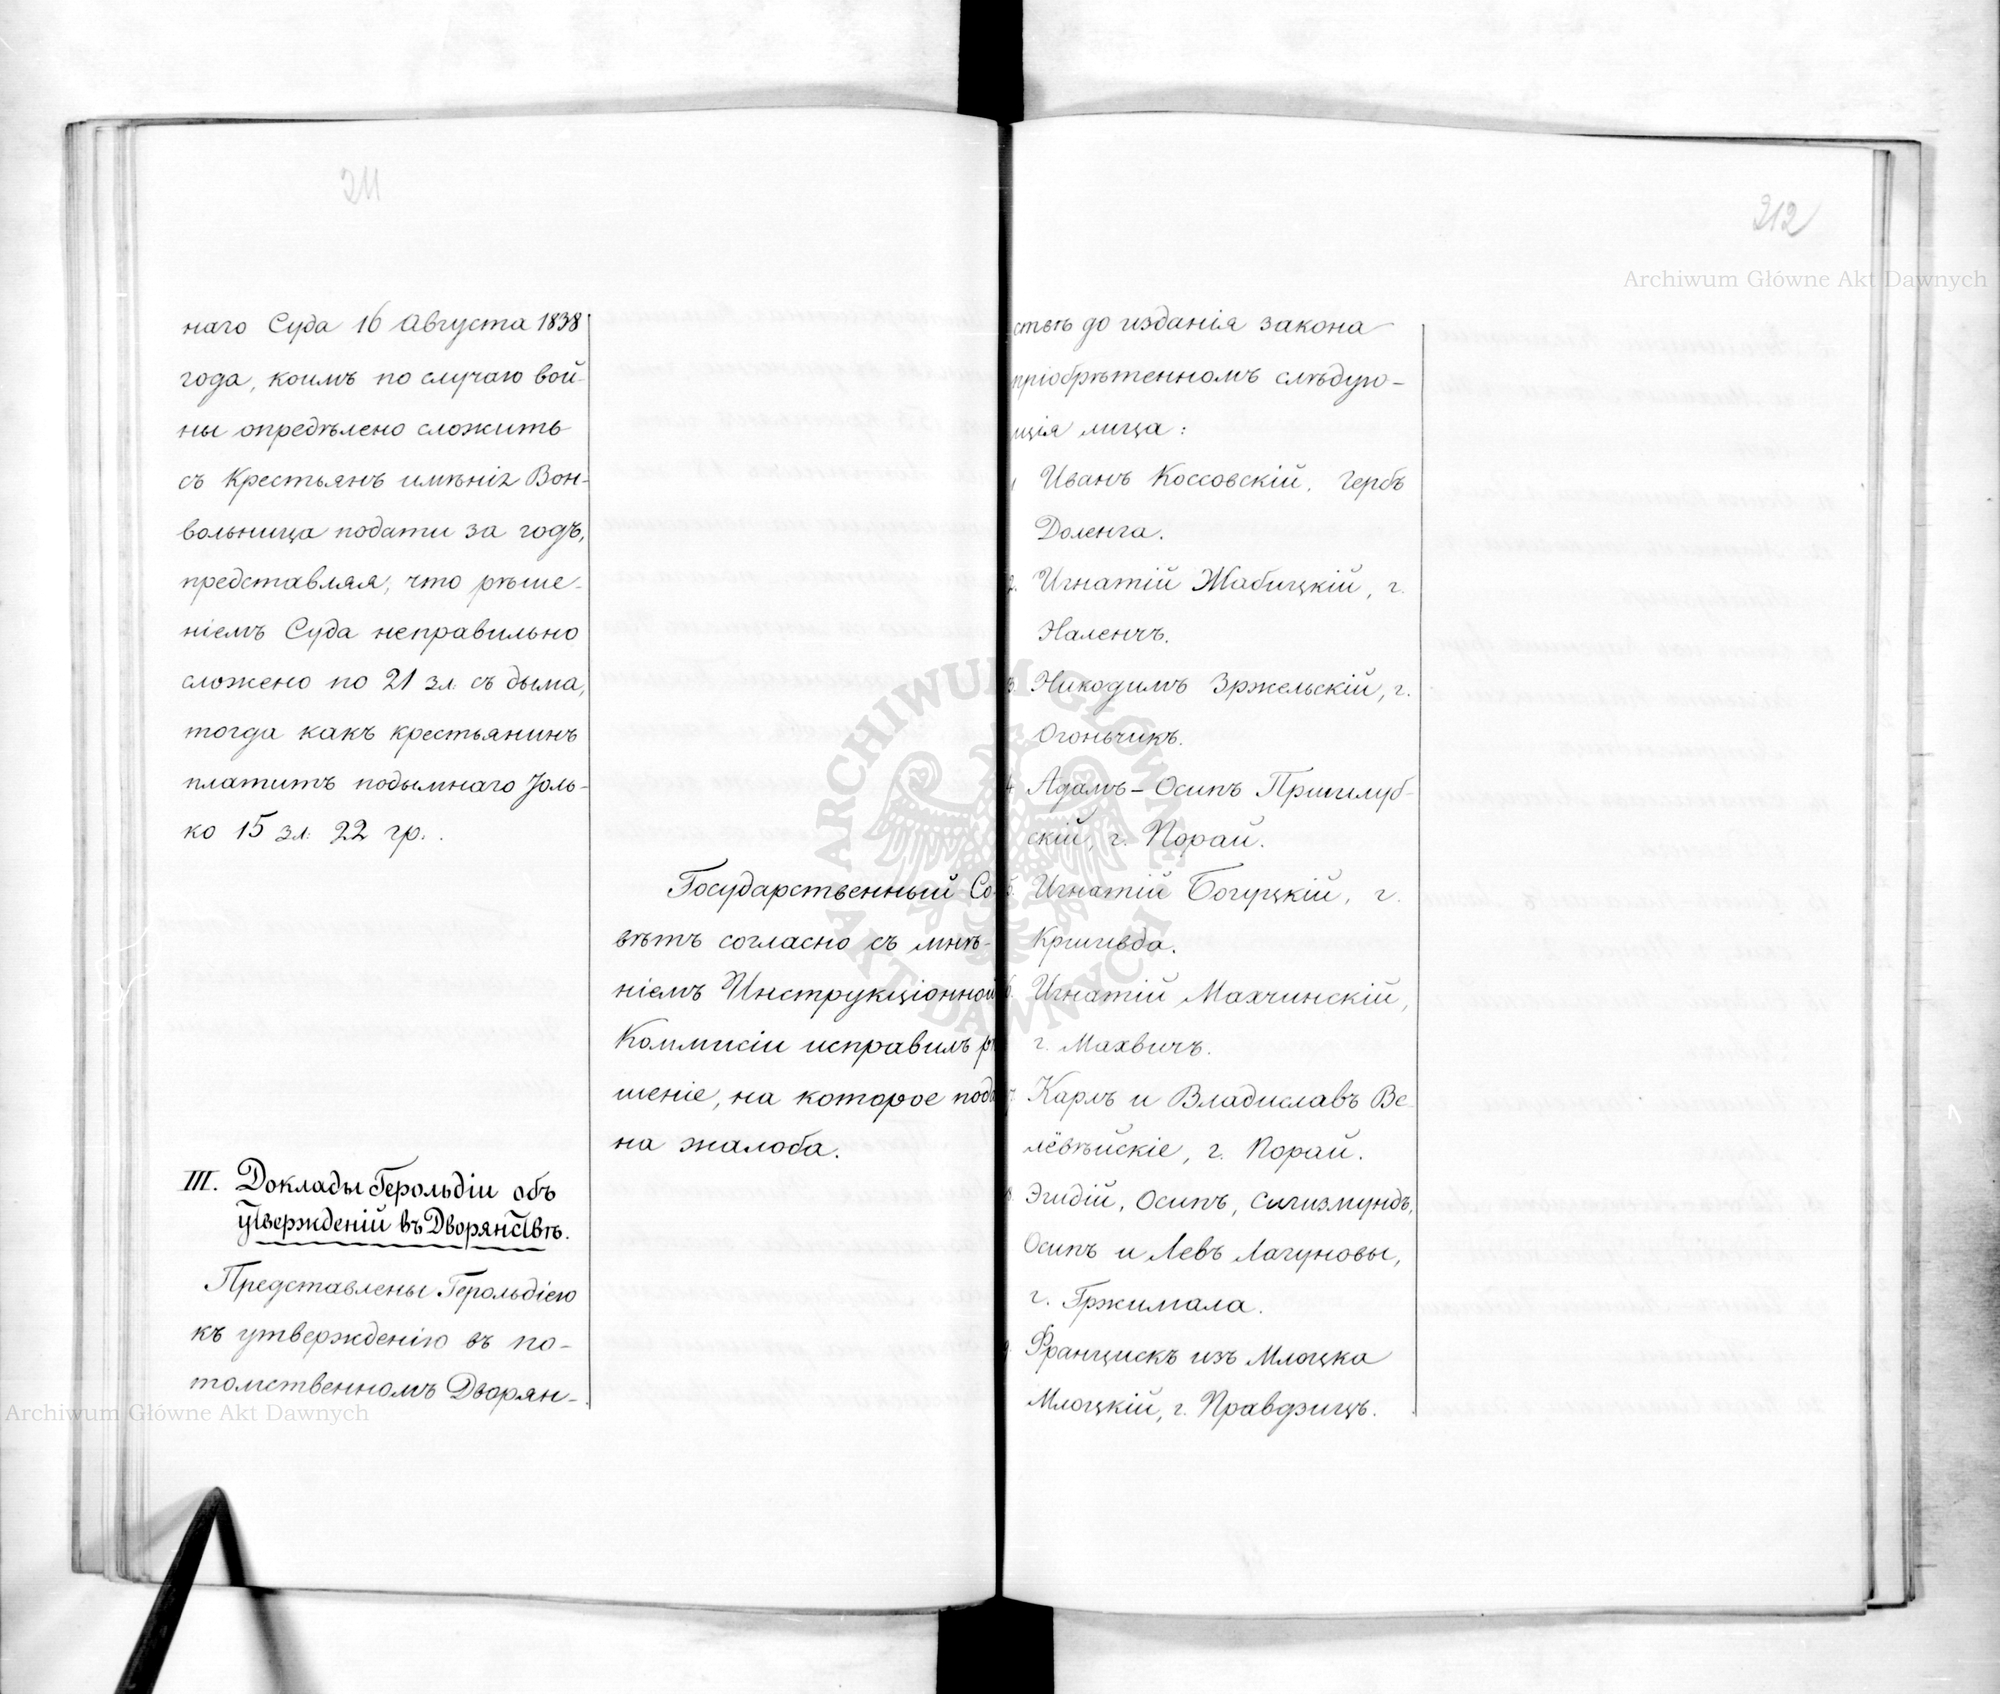 211
наго Суда 16 Августа 1838
года, коимъ по случаю вой-
ны опредѣлено сложить
съ крестьянъ имѣнія Вон-
вольница подати за годъ,
представляя, что рѣше-
ніемъ Суда неправильно
сложено по 21 зл. съ дыма,
тогда какъ крестьянинъ
платитъ подымнаго толь-
ко 15 зл. 22 гр.
Государственный Со-
вѣтъ согласно съ мнѣ-
ніемъ Инструкціонной
Коммисіи исправилъ рѣ
шеніе, на которое пода
на жалоба.
III. Доклады Герольдіи объ
утвержденій въ Дворянствѣ.
Представлены Герольдіею
къ утвержденію въ по-
томственномъ Дворян-
212
ствѣ до изданія закона
пріобрѣтенномъ слѣдую-
щія лица:
1 Иванъ Коссовскій, гербъ
Доленга.
2. Игнатій Жабицкій, г.
Наленчъ.
3. Никодимъ Зржельскій, г.
Огоньчикъ.
4 Адамъ-Осипъ Пришлуб-
скій, г. Порай.
5. Игнатій Богуцкій, г.
Кришвда.
6. Игнатій Махчинскій,
г. Махвичъ.
7. Карлъ и Владиславъ Ве-
лёвѣйскіе, г. Порай.
8. Эгидій, Осипъ, Сигизмундъ,
Осипъ и Левъ Лагуновы,
г. Гржимала.
9. Францискъ изъ Млоцка
Млоцкій, г. Правдзицъ.
Archiwum Główne Akt Dawnych
ARCHIWUM GŁÓWNE AKT DAWNYCH
Archiwum Główne Akt Dawnych